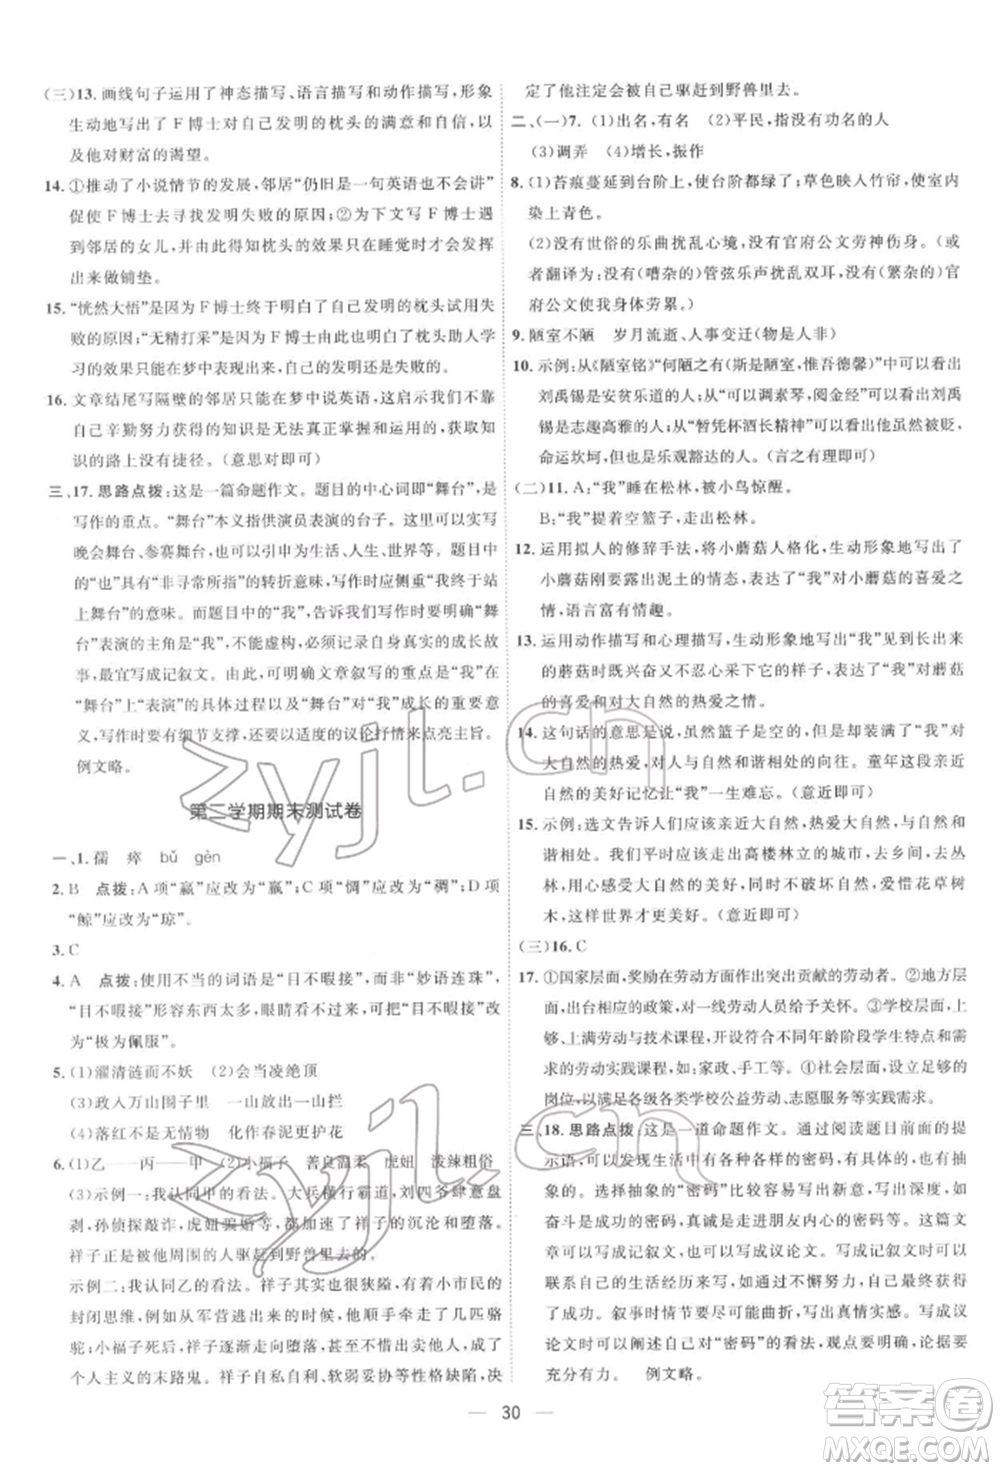 (三)13. 画线句子运用了神态描写、语言描写和动作描写,形象
生动地写出了F博士对自己发明的枕头的满意和自信,以
及他对财富的渴望。
14. ①推动了小说情节的发展,邻居“仍旧是一句英语也不会讲”
促使F博士去寻找发明失败的原因;②为下文写F博士遇
到邻居的女儿,并由此得知枕头的效果只在睡觉时才发挥
出来做铺垫。
15. “恍然大悟”是因为F博士终于明白了自己发明的枕头试用失
败的原因;“无精打采”是因为F博士明白了枕头助人学
习的效果只在梦中有用,自己的发明还是失败的。
16. 文章结尾写隔壁的邻居只能在梦中说英语,这启示我们不靠
自己辛勤努力获得的知识是无法真正掌握和运用的,获取知
识的路上没有捷径。(意思对即可)
三、17. 思路点拨:这是一篇命题作文。题目的中心词即“舞台”,是
写作的重点。“舞台”本义指供演员表演的台子。这里可以写
晚会舞台、参赛舞台,也可以引申为生活、人生、世界。题目中
的“也”具有“非寻常所指”的转折意味,写作时应侧重“我终于站
上舞台”的意味。而题目中的“我”,告诉我们写作时要写出“舞
台”表演的主角是“我”,不能虚构,必须记录自我的成长故
事,最宜写成记叙文。题目明确了文章叙写的重点是“我”在
“舞台”上“表演”的过程,要写出“舞台”对“我”成长的重要意
义,写作时要有细节支撑,以适度的议论抒情来点亮主旨。
例文略。
第二学期期末测试卷
一、1. 孺 瘁 bǔ gèn
2. B 点拨:A项“赢”应改为“嬴”;C项“惆”应改为“稠”;D项
“鲸”应改为“琼”。
3. C
4. A 点拨:使用不当的词语是“目不暇接”,而非“妙语连珠”,
“目不暇接”形容东西太多,眼睛看不过来,可把“目不暇接”
改为“极为佩服”。
5. (1)濯清涟而不妖 (2)会当凌绝顶
(3)政入万山围子里 一山放出一山拦
(4)落红不是无情物 化作春泥更护花
6. (1)乙——丙——甲 (2)小福子 善良温柔 虎妞 泼辣粗俗
(3)示例一:我认同甲的看法。大兵横行霸道,刘四爷肆意盘
剥,孙侦探敲诈,虎妞骗婚等,都导致了祥子的沉沦和堕落。
祥子正是被他周围的人驱赶到野兽里去的。
示例二:我认同乙的看法。祥子其实也很狭隘,有着小市民的
封闭思维,比如从军营逃出来的时候,他顺手牵走了几匹骆
驼;小福子死后,祥子逐渐变得麻木、潦倒、狡猾,最终成了
个人主义的末路鬼。祥子自私自利、软弱妥协的性格缺陷,决
定了他注定会被自己驱赶到野兽里去。
二、(一)7. (1)出名,有名 (2)平民,指没有功名的人
(3)调弄 (4)增长,振作
8. (1)苔痕蔓延到台阶上,使台阶都绿了;草色映入竹帘,使室内
染上青色。
(2)没有世俗的乐曲扰乱心境,没有官府公文劳神伤身。(或
者翻译为:没有(嘈杂的)管弦乐声扰乱双耳,没有(繁杂的)官
府公文使我身体劳累。)
9. 陋室不陋 岁月流逝、人事变迁(物是人非)
10. 示例:从《陋室铭》“何陋之有(斯是陋室,惟吾德馨)”中可以看出
刘禹锡是安贫乐道的人;从“可以调素琴,阅金经”可以看出刘禹
锡是志趣高雅的人;从“暂凭杯酒长精神”可以看出刘禹锡虽然
命运坎坷,但也是乐观豁达的人。(意近即可)
(二)11. A:“我”睡在松林,被小鸟惊醒。
B:“我”提着空篮子,走出松林。
12. 运用拟人的修辞手法,将小蘑菇人格化,生动形象地写出了
小蘑菇刚刚露出泥土的情态,表达了对小蘑菇的喜爱之
情,语言富有情趣。
13. 运用动作描写和心理描写,生动形象地写出“我”见到长出来
的蘑菇时既兴奋又不忍心采下它的样子,表现出“我”对蘑菇
的喜爱和对大自然的热爱之情。
14. 这句话的意思是说,虽然篮子是空的,但却装满了“我”对大
自然的热爱,以及人与自然和谐相处的画面。童年亲近自然
的美好记忆让“我”一生难忘。
15. 示例:选文告诉人们应该亲近大自然、热爱大自然,与大自然
和谐相处。我们平时应该多走出高楼林立的城市,去乡间,去
山林,感受大自然的美好,不破坏大自然,爱惜花草树
木,这样世界才更美好。(意近即可)
(三)16. C
17. ①国家层面,奖励在劳动方面作出突出贡献的劳动者。②地方层
面,出台相应的政策,对一线劳动人员给予关怀。③学校层面,上
够、上满劳动与技术课程,开设一些不同年龄阶段学生特点和需
求的劳动实践课程,如:家政、手工等。④社会层面,有能力的
岗位,以满足各级各类学校公益劳动、志愿服务等实践需求。
三、18. 思路点拨:这是一道命题作文。通过阅读题目前面的提
示语,可以知道“密码”可以是具体的,也可以是抽象
的。选择抽象的“密码”比较容易写出新意,写出深度,如
奋斗是成功的密码,真诚是走进朋友内心的密码等。这篇文
章可以写成记叙文,也可以写成议论文。写成记叙文可以
联系自己的生活经历进行写作,写自己是如何发现密码并取得
了成功。叙事时情节要尽可能曲折,写出真情实感。写成议
论文可以阐述自己对“密码”的看法,观点要明确,论据要
充分有力。 例文略。
30
zyjl.cn
zyjl.cn
答案圈
MXQE.COM